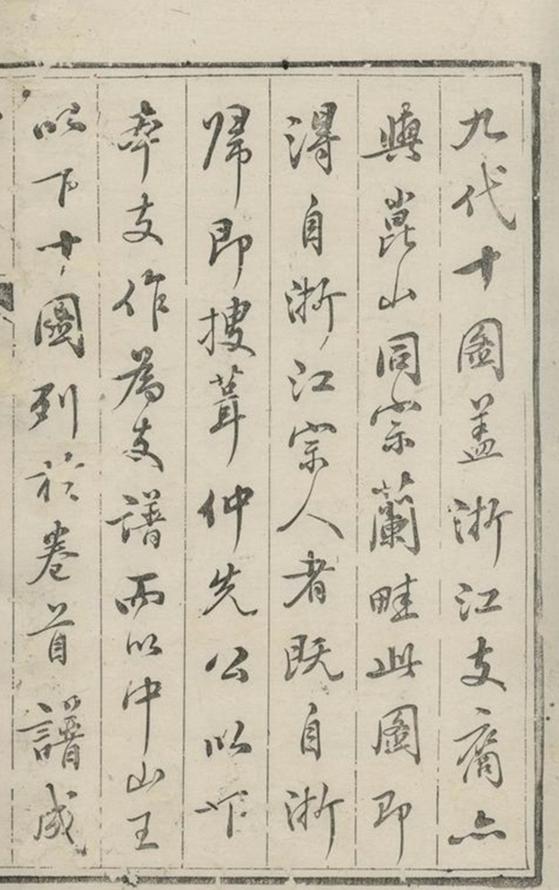 九代十圖蓋浙江支裔亦
與崑山同宗蘭畦此圖即
得自浙江宗人者既自浙
歸即搜葺仲先公以下
本支作為支譜而以中山王
以下十圖列於卷首譜成